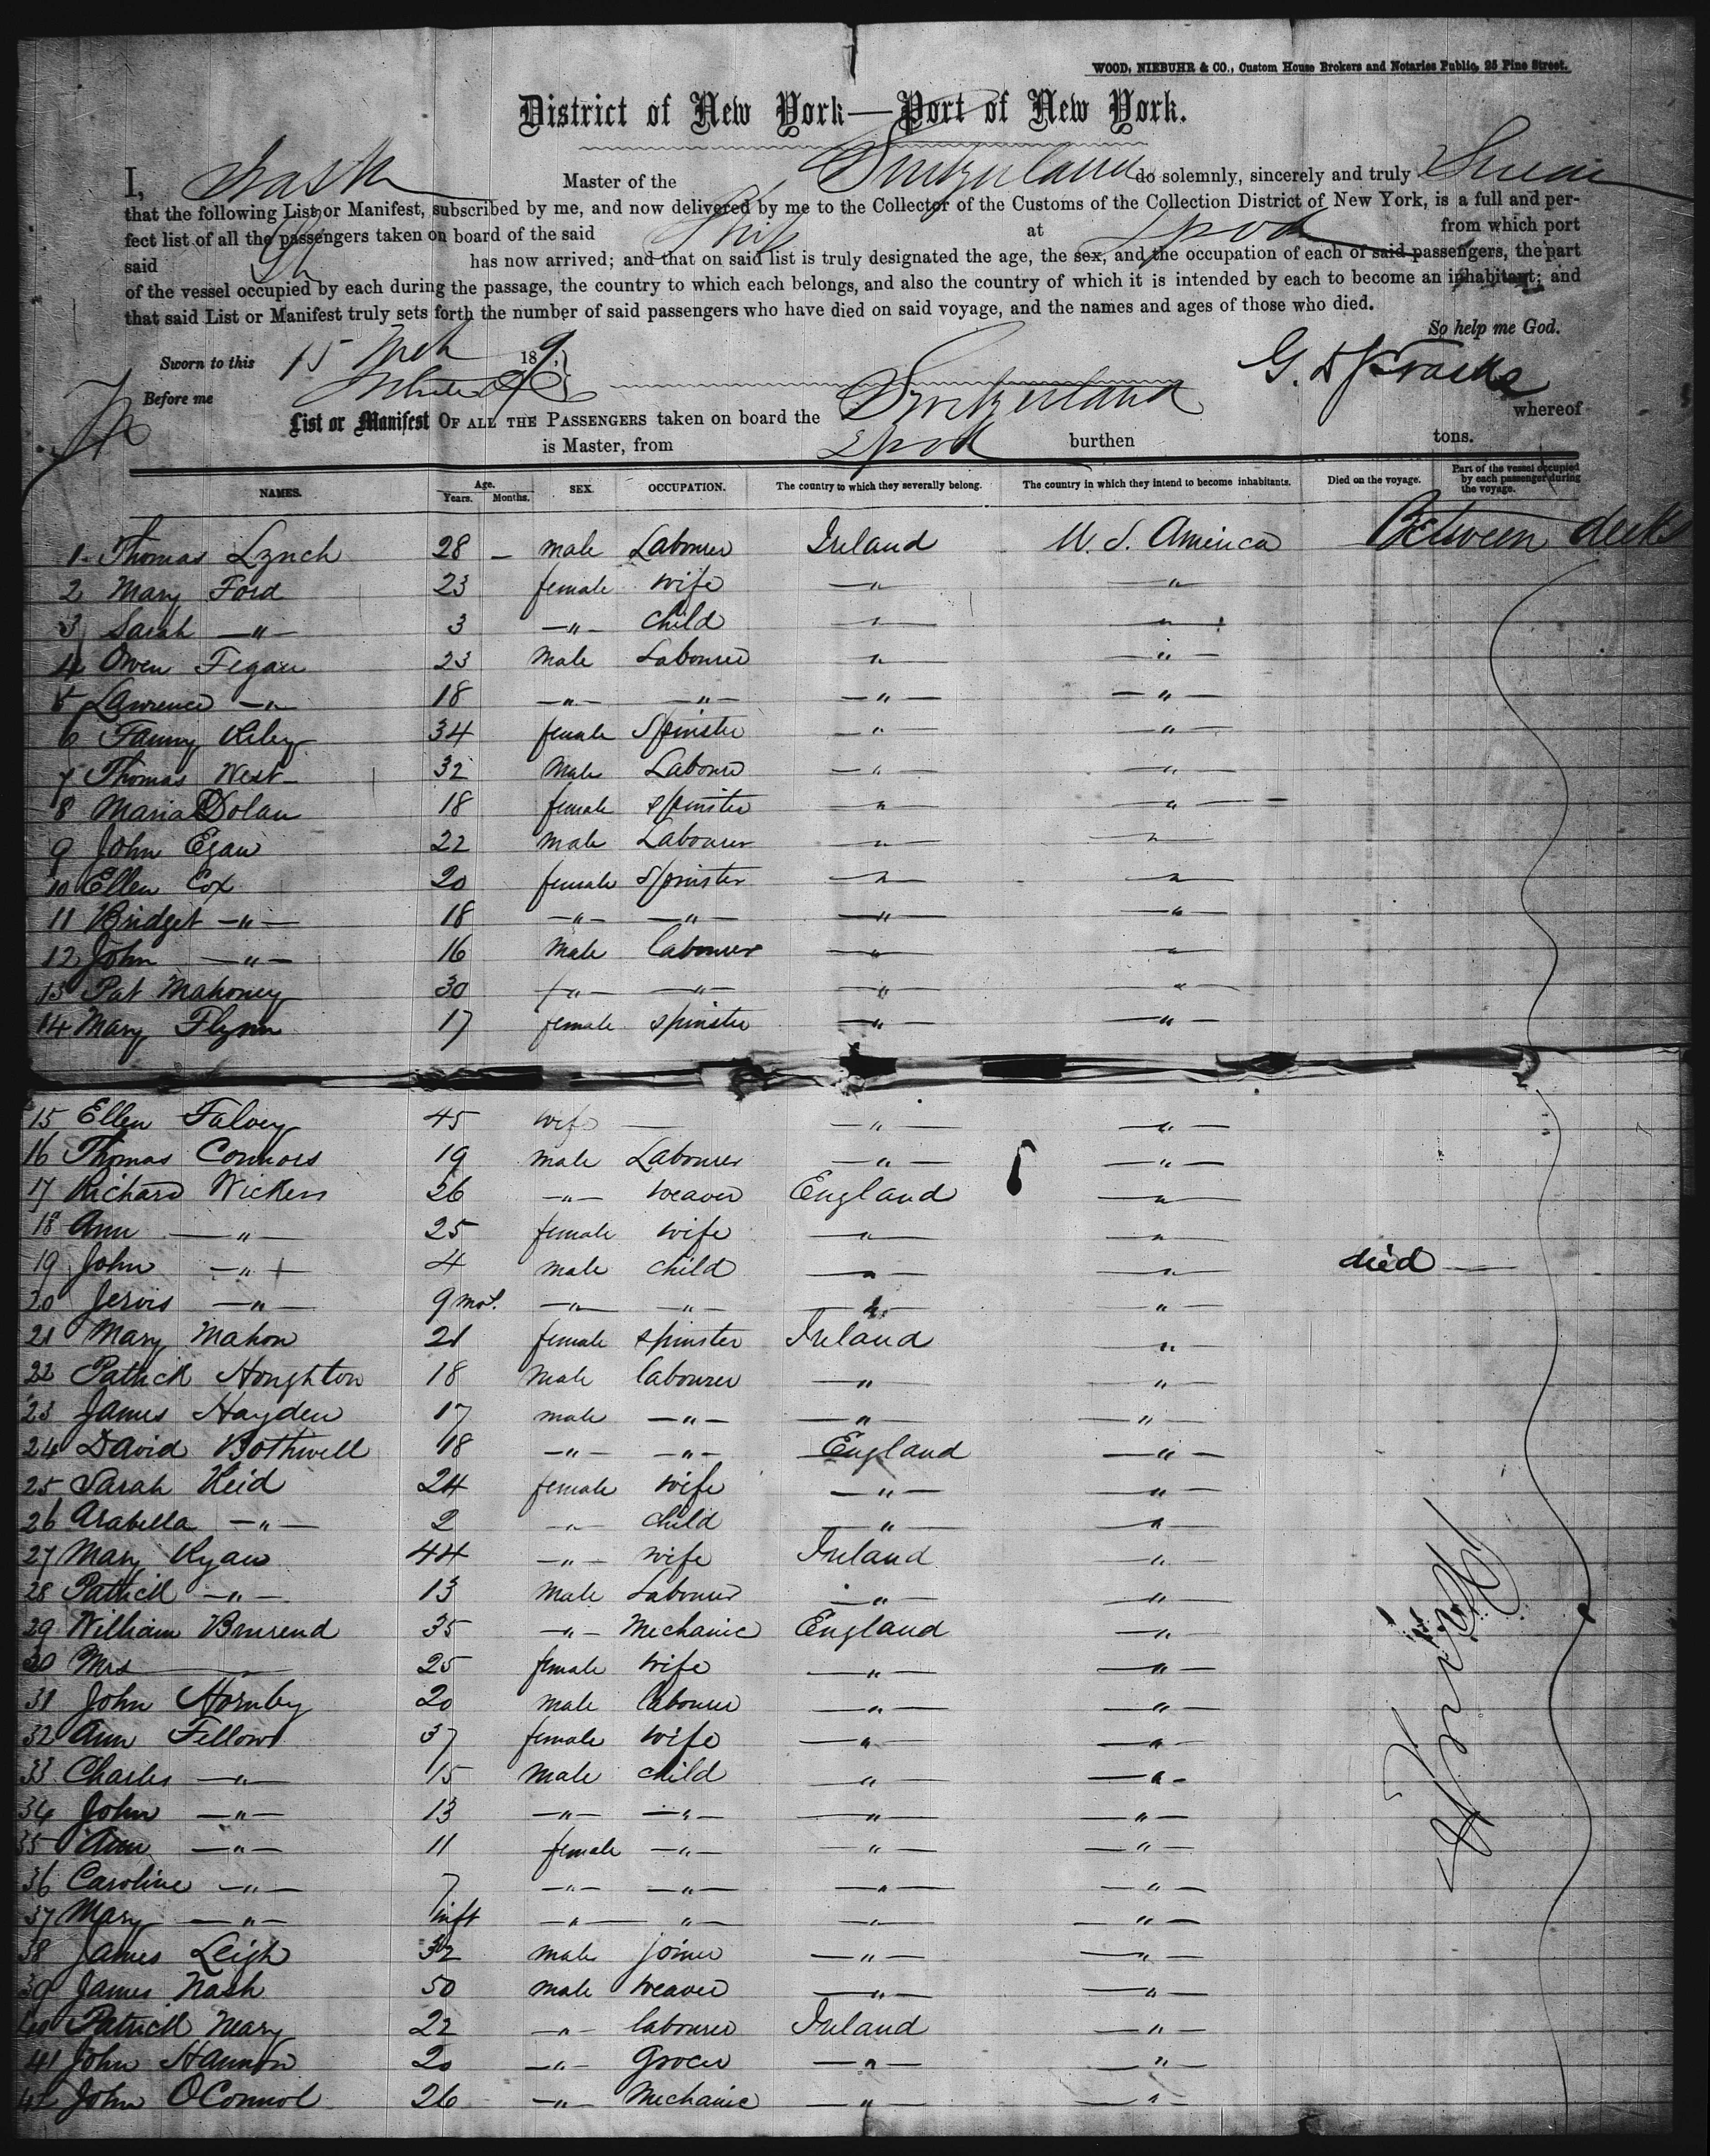 WOOD, NIEBUHR & CO., Custom House Brokers and Notaries Public, 25 Pine Street.
District of New York—Port of New York.
I, Trask Master of the Switzerland do solemnly, sincerely and truly Swear
that the following List or Manifest, subscribed by me, and now delivered by me to the Collector of the Customs of the Collection District of New York, is a full and per-
fect list of all the passengers taken on board of the said Ship at Lpool from which port
said Sh has now arrived; and that on said list is truly designated the age, the sex, and the occupation of each of said passengers, the part
of the vessel occupied by each during the passage, the country to which each belongs, and also the country of which it is intended by each to become an inhabitant; and
that said List or Manifest truly sets forth the number of said passengers who have died on said voyage, and the names and ages of those who died.
So help me God.
Sworn to this 15 Mch 18
Before me
G. D. S. Trask
List or Manifest OF ALL THE PASSENGERS taken on board the Switzerland whereof
is Master, from Lpool burthen tons.
NAMES. Age. Years. Months. SEX. OCCUPATION. The country to which they severally belong. The country in which they intend to become inhabitants. Died on the voyage. Part of the vessel occupied by each passenger during the voyage.
1 Thomas Lynch 28 — male Labourer Ireland U. S. America Between decks
2 Mary Ford 23 female wife —"— —"—
3 Sarah —"— 3 —"— child —"— —"—
4 Owen Fegan 23 male Labourer —"— —"—
5 Lawrence —"— 18 —"— —"— —"— —"—
6 Fanny Riley 34 female Spinster —"— —"—
7 Thomas West 32 male Labourer —"— —"—
8 Maria Dolan 18 female spinster —"— —"—
9 John Egan 22 male Labourer —"— —"—
10 Ellen Cox 20 female Spinster —"— —"—
11 Bridget —"— 18 —"— —"— —"— —"—
12 John —"— 16 male labourer —"— —"—
13 Pat Mahoney 30 —"— —"— —"— —"—
14 Mary Flynn 17 female spinster —"— —"—
15 Ellen Falvey 45 wife — —"— —"—
16 Thomas Connors 19 male Labourer —"— —"—
17 Richard Wickens 26 —"— weaver England —"—
18 Ann —"— 25 female wife —"— —"—
19 John —"— 4 male child —"— —"— died
20 Jervis —"— 9 mos. —"— —"— —"— —"—
21 Mary Mahon 21 female spinster Ireland —"—
22 Patrick Houghton 18 male labourer —"— —"—
23 James Hayden 17 male —"— —"— —"—
24 David Bothwell 18 —"— —"— England —"—
25 Sarah Reid 24 female wife —"— —"—
26 Arabella —"— 2 —"— child —"— —"—
27 Mary Ryan 44 —"— wife Ireland —"—
28 Patrick —"— 13 male Labourer —"— —"—
29 William 35 —"— Mechanic England —"—
30 Mrs — 25 female wife —"— —"—
31 John Hornby 20 male labourer —"— —"—
32 Ann Fellows 37 female wife —"— —"—
33 Charles —"— 15 male child —"— —"—
34 John —"— 13 —"— —"— —"— —"—
35 Ann —"— 11 female —"— —"— —"—
36 Caroline —"— 7 —"— —"— —"— —"—
37 Mary —"— inft —"— —"— —"— —"—
38 James Leigh 32 male joiner —"— —"—
39 James Nash 50 male weaver —"— —"—
40 Patrick Neary 22 —"— labourer Ireland —"—
41 John Hannon 20 —"— Grocer —"— —"—
42 John OConnol 26 —"— Mechanic —"— —"—